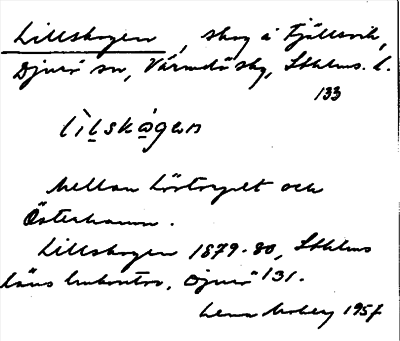 Lillskogen, skog å Fjällsvik,
Djurö sn, Värmdö skg, Sthlms. l.
133
lìlskògen
Mellan Lövtorpet och
Österhamn.
Lillskogen 1879-80, Sthlms
läns lmkontor, Djurö 131.
Lena Moberg 1957